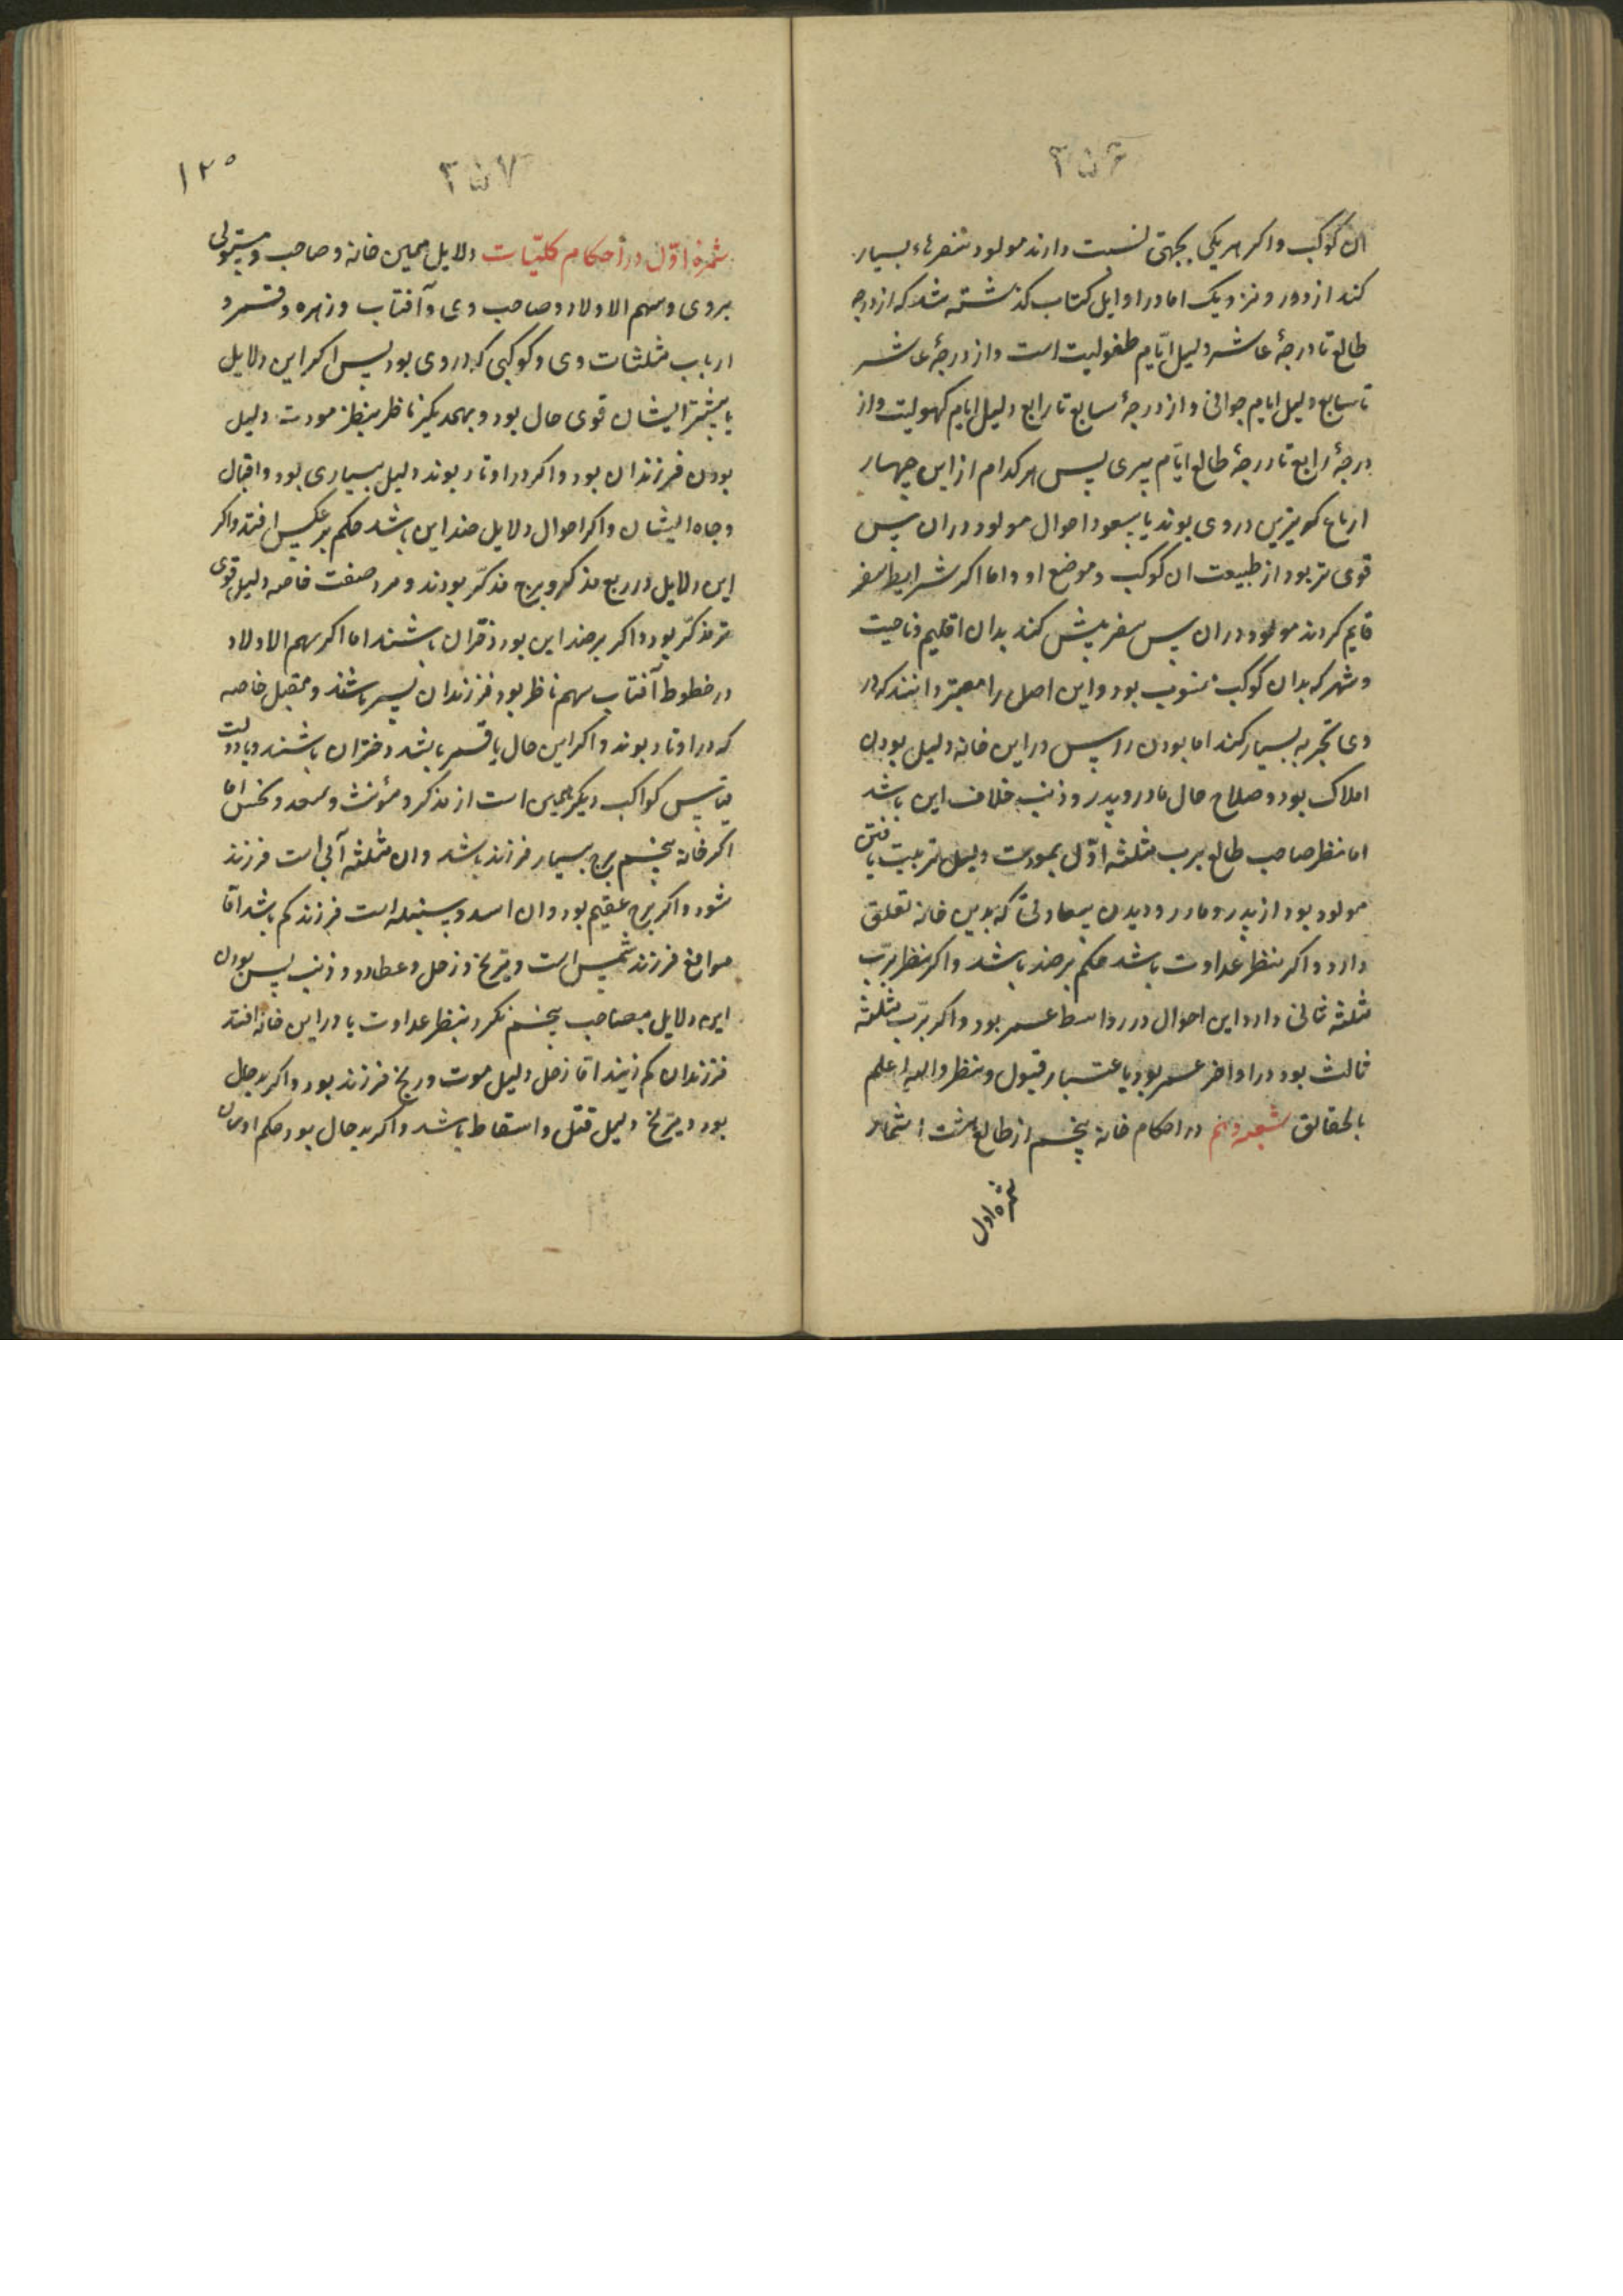 ۳۵۶
ان کوکب واکر هریکی بجهتی نسبت دارند مولود سفرهاء بسیار
کند از دور ونزدیک اما در اوایل کتاب کذشته شد که از درجه
طالع تا درجهٔ عاشر دلیل ایّام طفولیت است واز درجهٔ عاشر
تا سابع دلیل ایام جوانی واز درجهٔ سابع تا رابع دلیل ایام کهولیت واز
درجهٔ رابع تا درجهٔ طالع ایّام پیری پس هر کدام از این چهار
ارباع که نیرین در وی بوند یا سعود احوال مولود در ان سن
قوی تر بود از طبیعت ان کوکب وموضع او واما اکر شرایط سفر
قایم کردند مولود در ان سن سفر بیش کند بدان اقلیم وناحیت
وشهر که بدان کوکب منسوب بود واین اصل را معتبر دانند که در
وی تجربه بسیار کنند اما بودن راس در این خانه دلیل بودن
املاک بود وصلاح حال مادر وپدر وذنب خلاف این باشد
اما نظر صاحب طالع برب مثلثه اوّل بمودت دلیل تربیت یافتن
مولود بود از پدر ومادر ودیدن سعادتی که بدین خانه تعلق
دارد واکر بنظر عداوت باشد حکم بر ضد باشد واکر نظر بربّ
مثلثه ثانی دارد این احوال در اواسط عمر بود واکر بربّ مثلثه
ثالث بود در اواخر عمر بود باعتبار قبول ونظر والله اعلم
بالحقائق شعبه پنجم در احکام خانه پنجم از طالع هشت اثمار
ثمره اول
۳۵۷
۱۲۵
ثمرهٔ اوّل در احکام کلیّات دلایل همین خانه وصاحب ومستولی
بر وی وسهم الاولاد وصاحب وی وآفتاب وزهره وقمر و
ارباب مثلثات وی وکوکبی که در وی بود پس اکر این دلایل
یا بیشتر ایشان قوی حال بود وبهمدیکر ناظر بنظر مودت دلیل
بودن فرزندان بود واکر در اوتاد بوند دلیل بسیاری بود واقبال
وجاه ایشان واکر احوال دلایل ضد این باشد حکم بر عکس افتد واکر
این دلایل در ربع مذکر وبرج مذکّر بودند ومرد صفت خاصه دلیل قوی
تر مذکّر بود واکر بر ضد این بود دختران باشند اما اکر سهم الاولاد
در خطوط آفتاب سهم ناظر بود فرزندان پسر باشند ومقبل خاصه
که در اوتاد بوند واکر این حال با قمر باشد دختران باشند وبا دولت
قیاس کواکب دیکر همین است از مذکر ومؤنث وسعد ونحس اما
اکر خانه پنجم برج بسیار فرزند باشد وان مثلثه آبی است فرزند
شود واکر برج عقیم بود وان اسد وسنبله است فرزند کم باشد امّا
موانع فرزند شمس است ومریخ وزحل وعطارد وذنب پس بودن
این دلایل بصاحب پنجم نکرد بنظر عداوت یا در این خانه افتد
فرزندان کم زیند امّا زحل دلیل موت ورنج فرزند بود واکر بد حال
بود ومرّیخ دلیل قتل واسقاط باشد واکر بد حال بود حکم اوسان